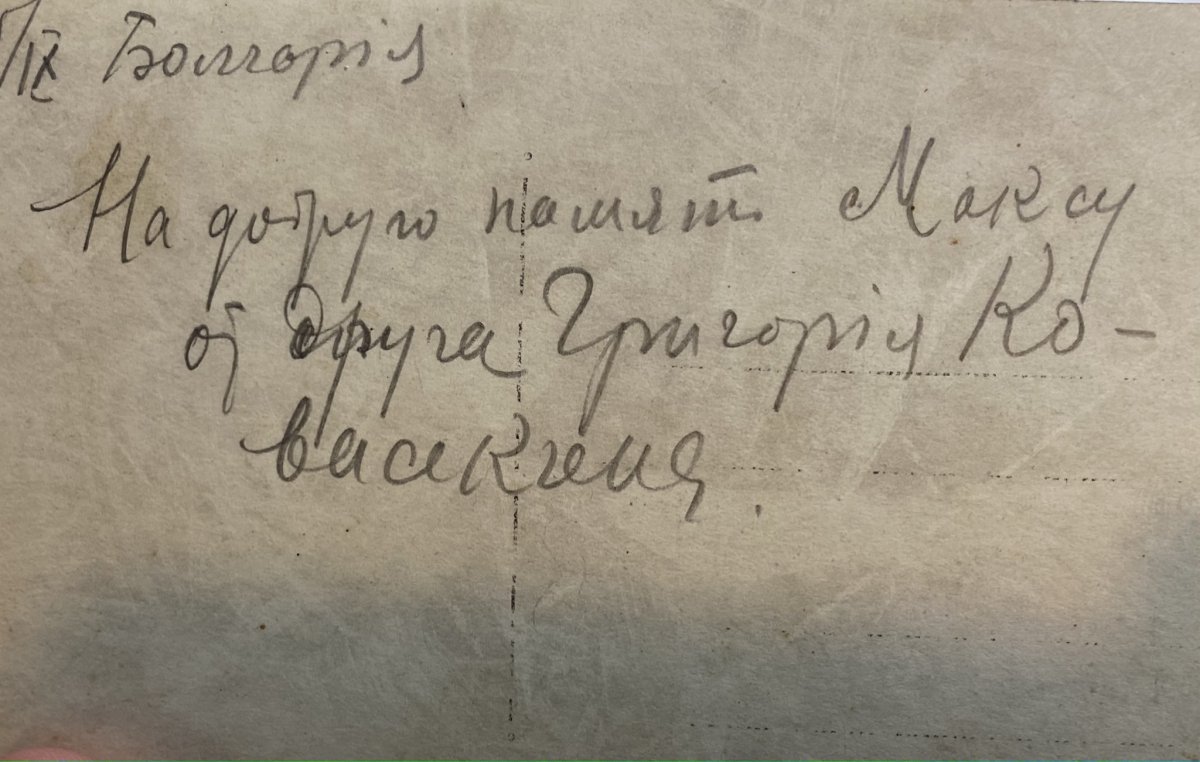 /IX Болгарія
На добрую памят Максу
от друга Григорія Ко-